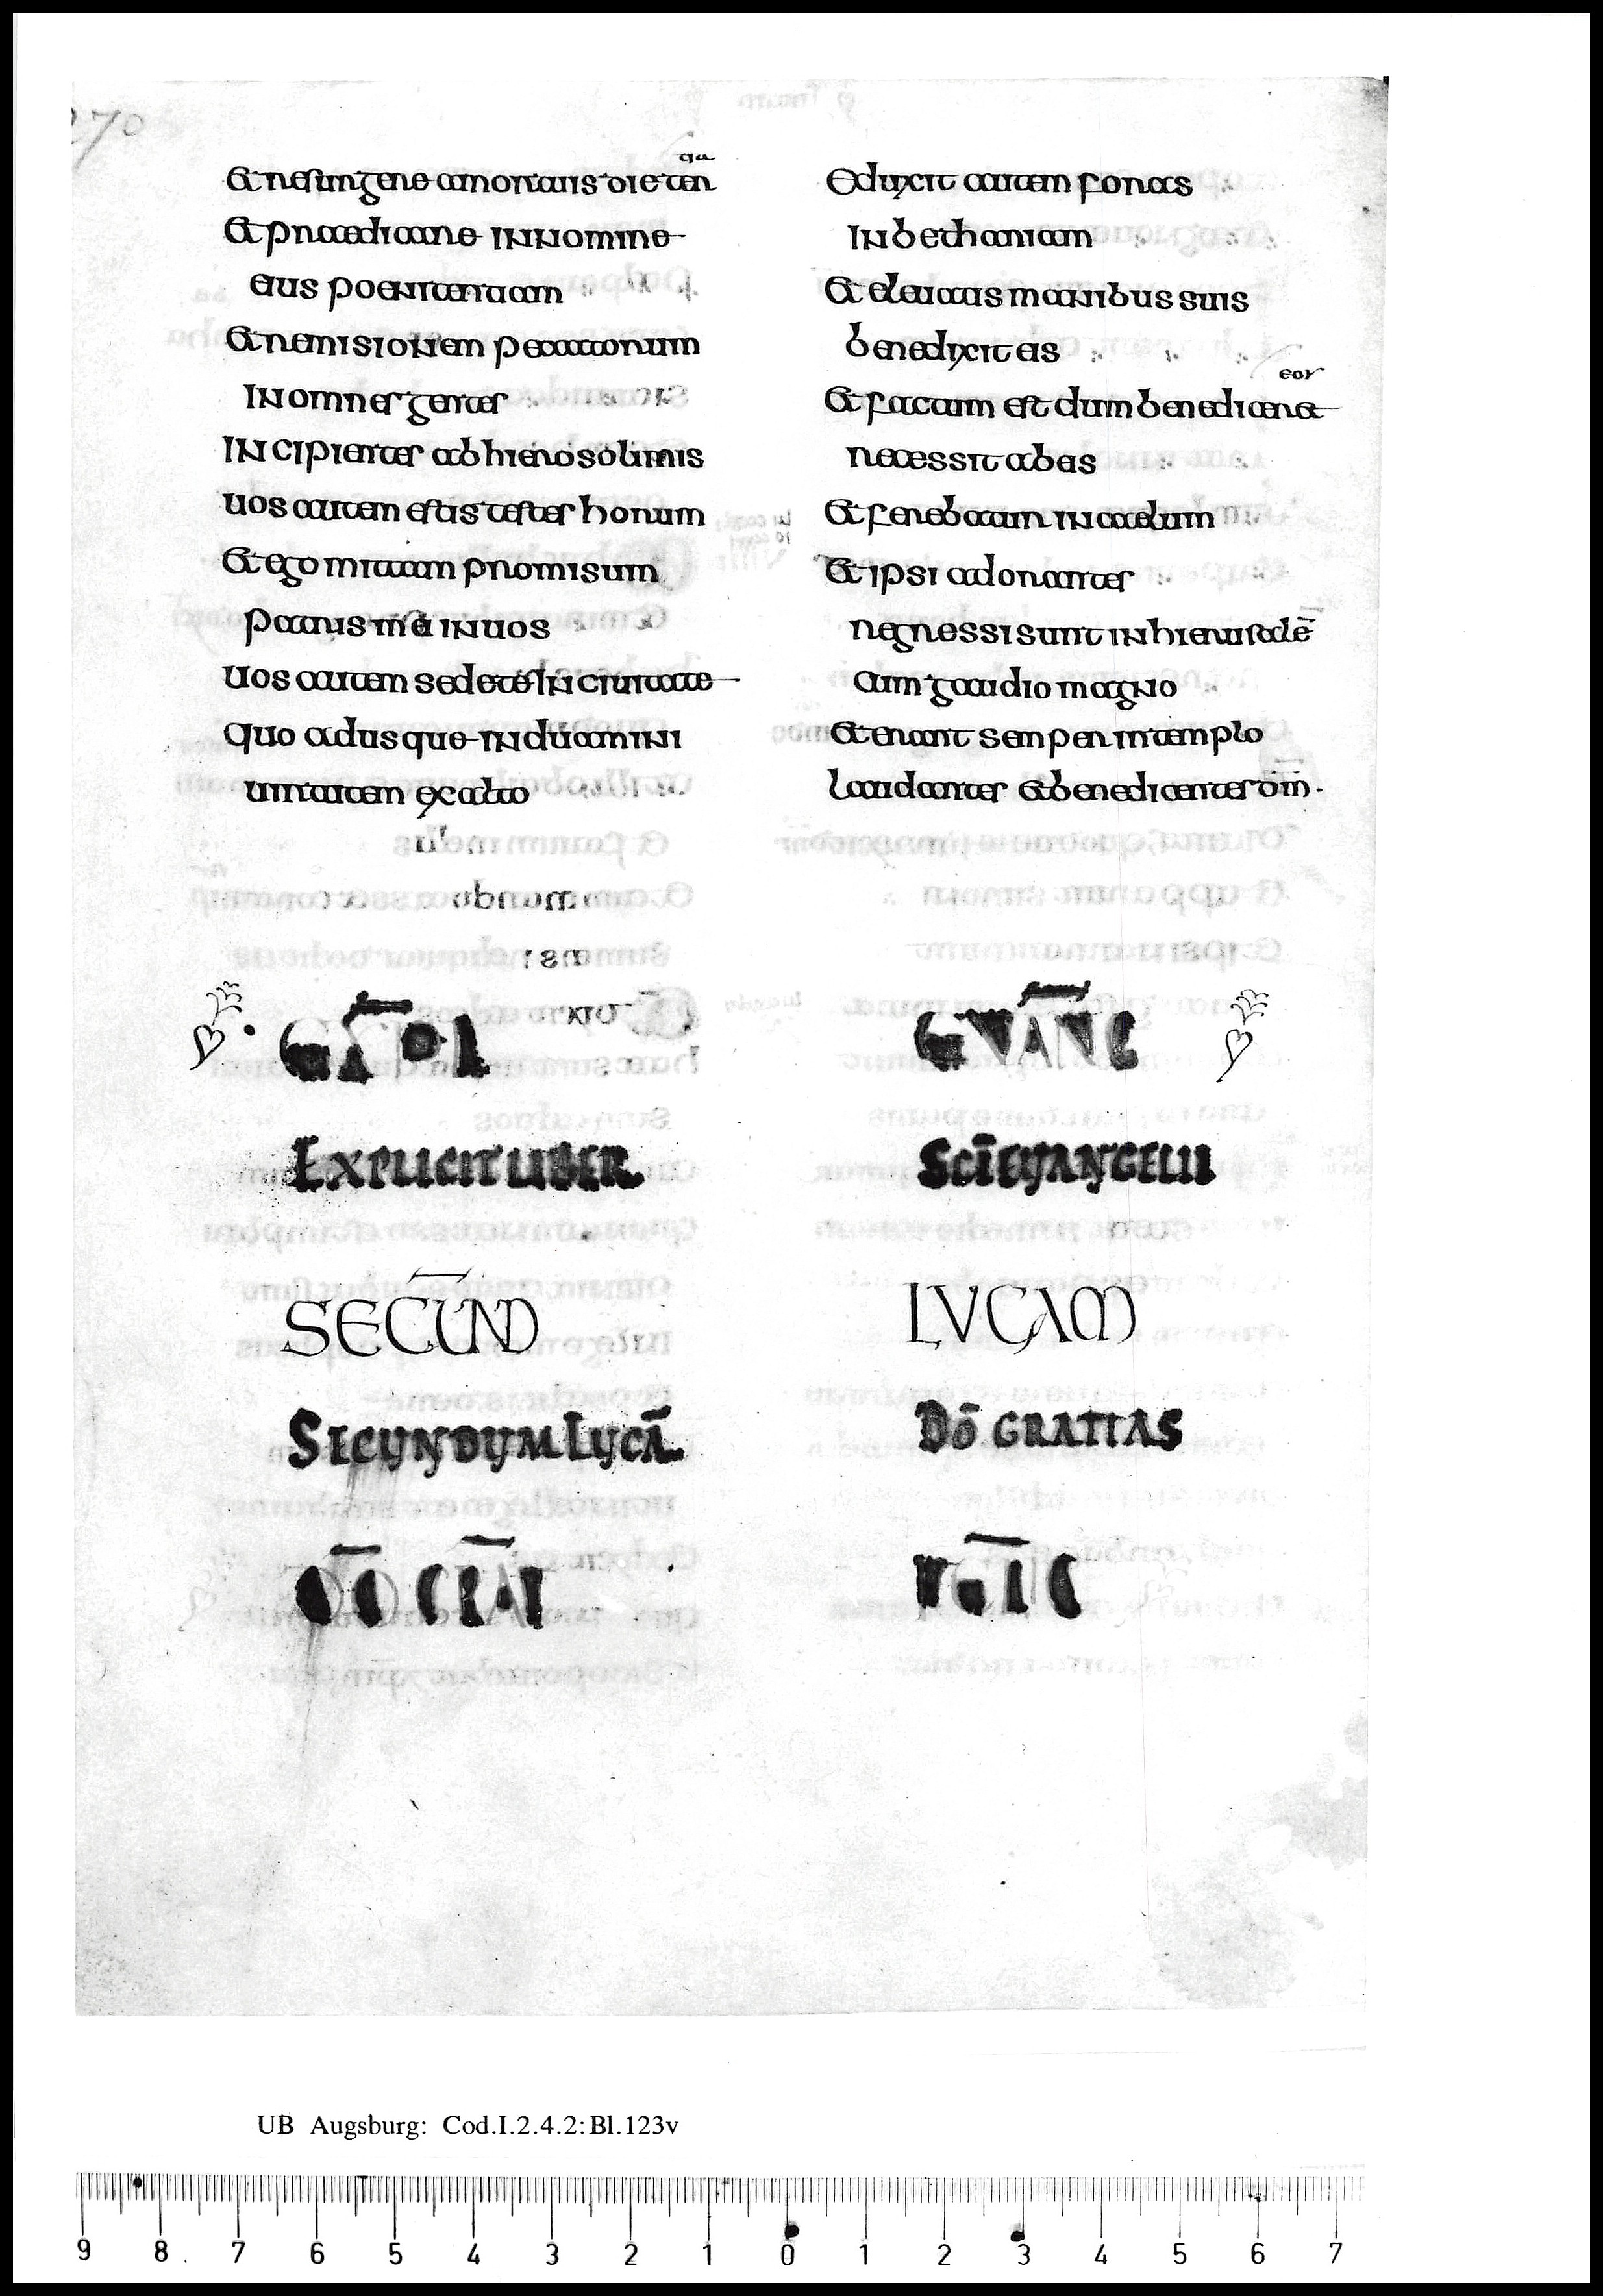 270
Et resurgere a mortuis die ter
tia
Et praedicare in nomine
eius poenitentiam
Et remisionem peccatorum
in omnes gentes
incipientes ab hierosolimis
uos autem estis testes horum
Et ego mittam promisum
patris mei in uos
uos autem sedete in ciuitate
quo adusque induamini
uirtutem ex alto
Eduxit autem foras
in bethaniam
Et eleuatis manibus suis
benedixit eis
Et factum est dum benediceret
eos
recessit ab eis
Et ferebatur in caelum
Et ipsi adorantes
regressi sunt in hierusalē
cum gaudio magno
Et erant semper in templo
laudantes et benedicentes dm̄.
EXPLICIT LIBER
SCĪ EUANGELII
SECUN̄D
LVCAM
SECUNDUM LUCĀ
DŌ GRATIAS
UB Augsburg: Cod.I.2.4.2:Bl.123v
9 8 7 6 5 4 3 2 1 0 1 2 3 4 5 6 7